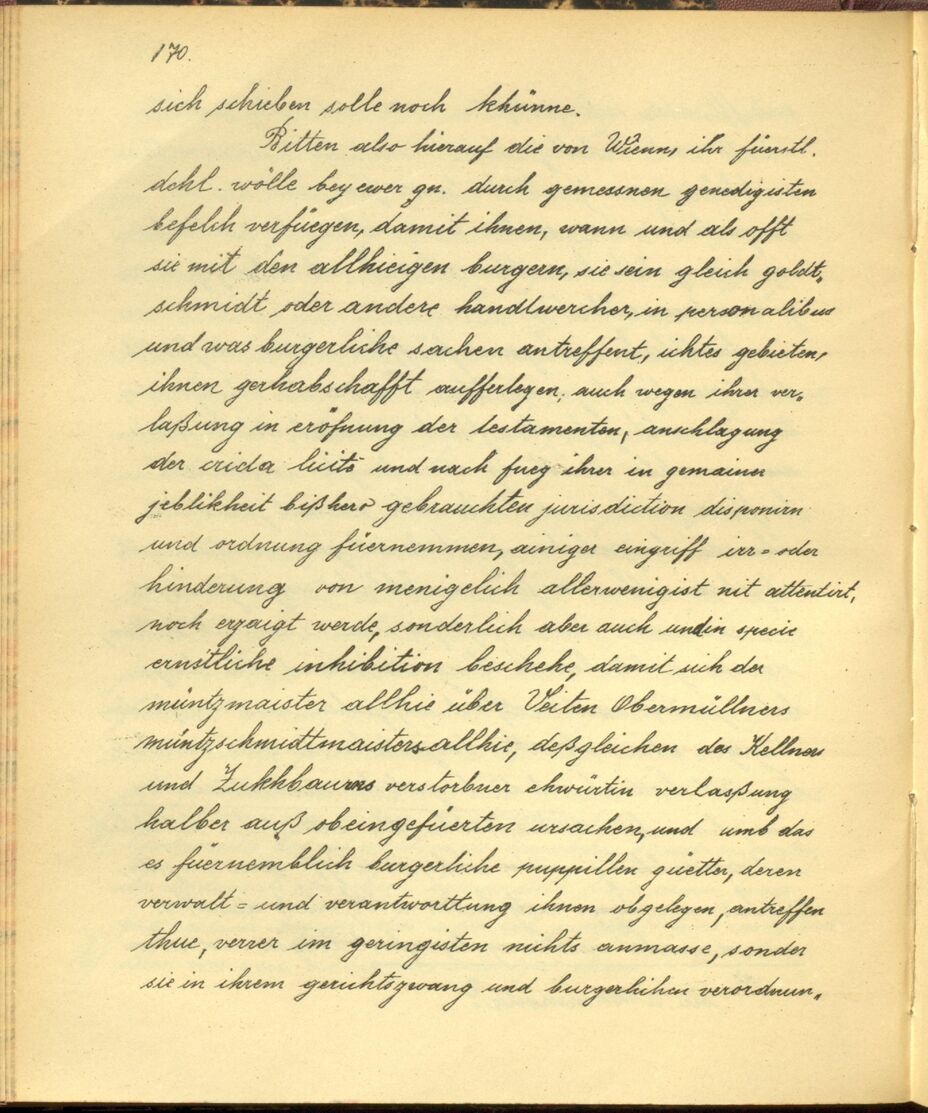 170.
sich schieben solle noch khünne.
Bitten also hierauf die von Wienn, ihr füerstl.
dchl. wölle bey ewer gn. durch gemessnen genedigisten
befelch verfüegen, damit ihnen, wann und als offt
sie mit den allhieigen burgern, sie sein gleich goldt„
schmidt oder andere handtwercher, in personalibus
und was burgerliche sachen antreffent, ichtes gebieten,
ihnen gerhabschafft aufferlegen, auch wegen ihrer ver„
laßung in eröfnung der testamenten, anschlagung
der crida licite und nach fueg ihrer in gemainer
jeblikheit bißhero gebrauchten jurisdiction disponirn
und ordnung füernemmen, ainiger eingriff irr= oder
hinderung von menigelich allerwenigist nit attentirt,
noch erzaigt werde, sonderlich aber auch und in specie
ernstliche inhibition beschehe, damit sich der
müntzmaister allhie über Veiten Obermüllners
müntzschmidtmaisters allhie, deßgleichen des Kellners
und Zukhbaurns verstorbner ehwürtin verlaßung
halber auß obeingefüerten ursachen, und umb das
es füernemblich burgerliche puppillen güetter, deren
verwalt= und verantworttung ihnen obgelegen, antreffen
thue, verrer im geringisten nichts anmasse, sonder
sie in ihrem gerichtszwang und burgerlichen verordnun„